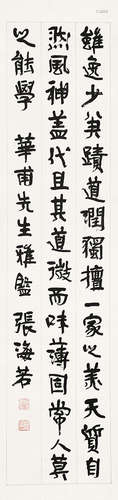 雖逸少筆蹟遒潤獨擅一家之美天質自
然風神蓋代且其道微而味薄固常人莫
之能學 華甫先生雅鑑 張海若